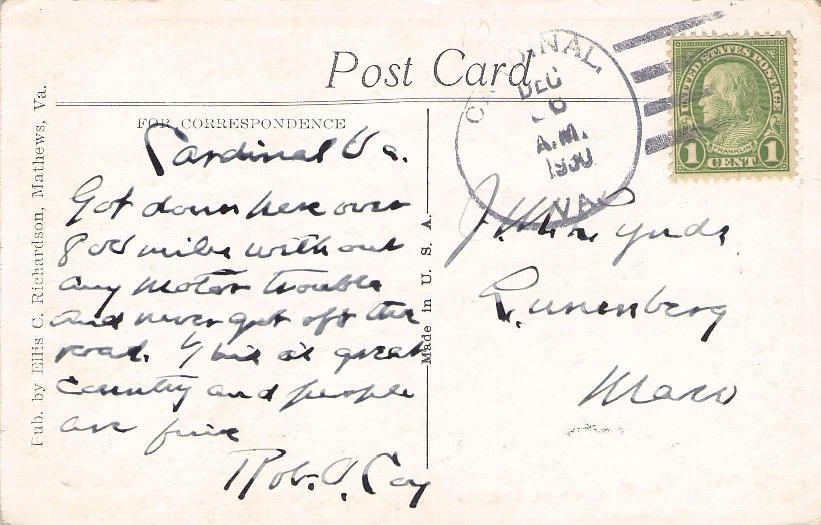 Post Card
FOR CORRESPONDENCE
Cardinal Va.
Got down here over
800 miles without
any motor trouble
and never got off the
road. great
country and people
are fine
Rob. A. Coy
Pub. by Ellis C. Richardson, Mathews, Va.
Made in U. S. A.
CARDINAL,
DEC
6
A.M.
1930
VA.
UNITED STATES POSTAGE
FRANKLIN
1 CENT 1
Lunenberg
Mass